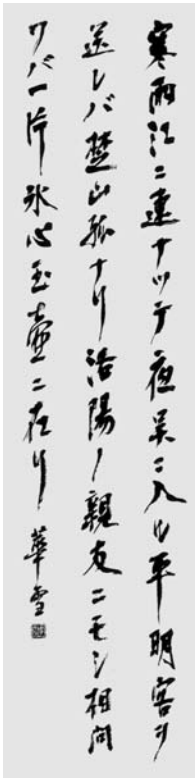 寒雨江ニ連ナッテ夜呉ニ入ル平明客ヲ
送レバ楚山孤ナリ洛陽ノ親友ニモシ相問
ワバ一片氷心玉壺ニ在リ 華雪